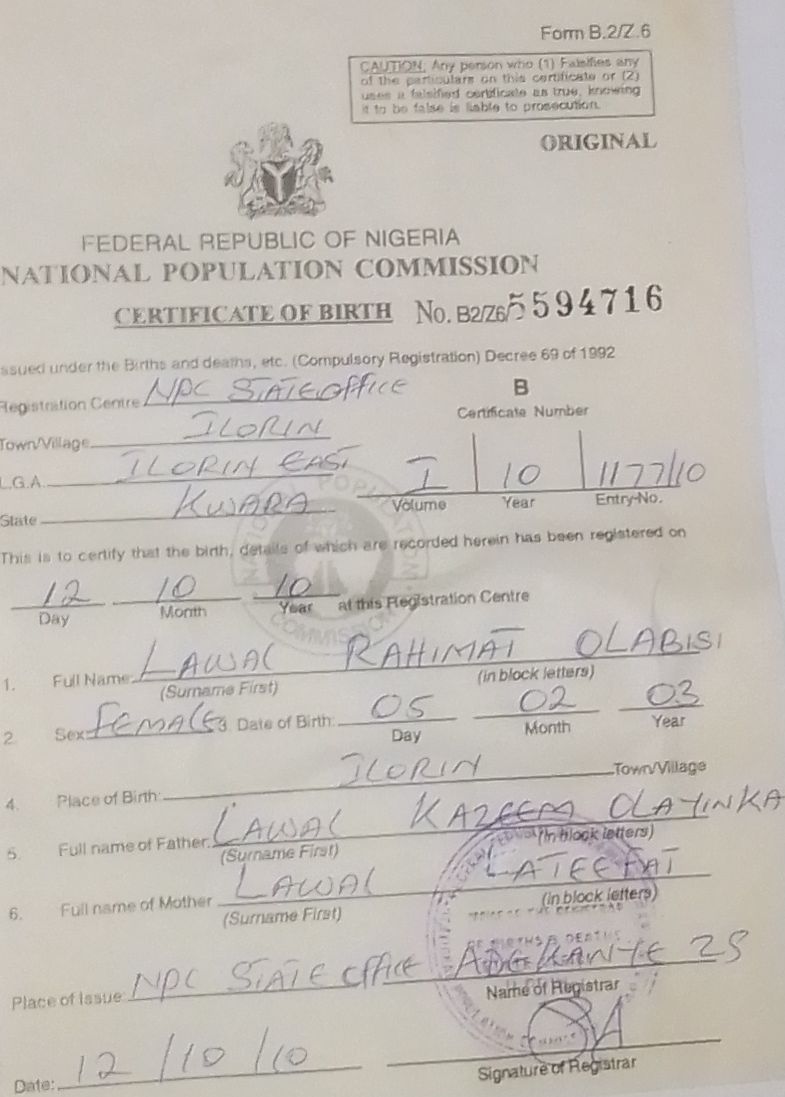 Form B.2/Z.6
CAUTION: Any person who (1) Falsifies any
of the particulars on this certificate or (2)
uses a falsified certificate as true, knowing
it to be false is liable to prosecution.
ORIGINAL
FEDERAL REPUBLIC OF NIGERIA
NATIONAL POPULATION COMMISSION
CERTIFICATE OF BIRTH No. B2/Z6/5594716
ssued under the Births and deaths, etc. (Compulsory Registration) Decree 69 of 1992
Registration Centre NPC STATE OFFICE B
Certificate Number
Town/Village ILORIN
L.G.A. ILORIN EAST
I 10 1177/10
Volume Year Entry-No.
State KWARA
This is to certify that the birth, details of which are recorded herein has been registered on
12 10 10 at this Registration Centre
Day Month Year
1. Full Name: LAWAL RAHIMAT OLABISI
(Surname First) (in block letters)
2. Sex FEMALE 3. Date of Birth: 05 02 03
Day Month Year
4. Place of Birth: ILORIN Town/Village
5. Full name of Father: LAWAL KAZEEM OLAYINKA
(Surname First) (in block letters)
6. Full name of Mother LAWAL LATEEFAT
(Surname First) (in block letters)
OF BIRTHS & DEATHS
Place of Issue: NPC STATE OFFICE
Name of Registrar
Date: 12/10/10
Signature of Registrar
NATIONAL POPULATION COMMISSION